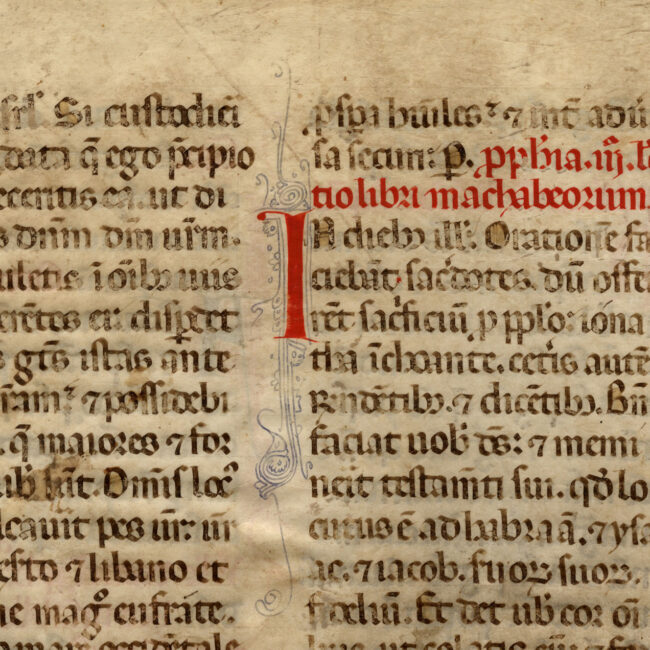 isrl'. Si custodieri
data q̄ ego p̄cipio
eceritis ea. ut di
s dn̄m dm̄ ur̄m.
uletis ī oīb; uiis
erētes ei: disꝑdet
s gt̄es istas ante
ur̄am: ⁊ possidebi
q̄ maiores ⁊ for
ub̄ sūt. Om̄is loc᷒
lcauit pes ur̄: ur̄
esto ⁊ libano et
e mag° eufrate.
mare occidentale
⁊ īt̄ adiu
ſa secuti: P. ꝓph̄ia. iij. l
tio libri machabeorum.
IN dieb; ill': Oratiōe fa
ciebāt sac̄dotes. dū offe
rēt sac̄ficiū ꝓ pplo: iona
tha īchoante. cet̄is autē
rn̄dētib;. ⁊ dicētib;. Bn̄
faciat uob̄ ds̄: ⁊ memi
nerit testam̄ti sui. qd̄ lo
cutus ē ad habraā. ⁊ ysa
ac. ⁊ iacob. suoꝝ
fideliū. Et det ub̄ cor oī